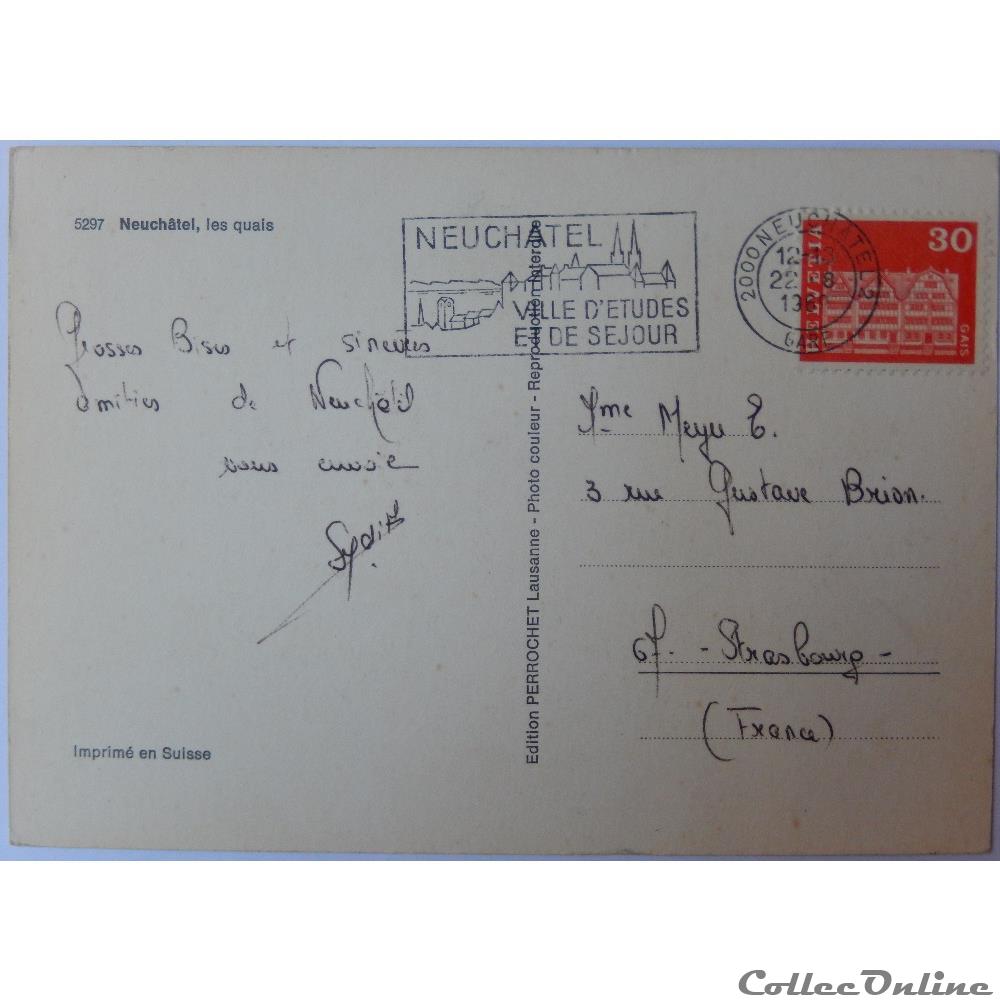 5297 Neuchâtel, les quais
NEUCHÂTEL
VILLE D'ETUDES
ET DE SEJOUR
2000 NEUCHÂTEL 2
22 -8
GARE
HELVETIA
30
GAIS
Grosses Bises et sincères
amitiés de Neuchâtel
vous envoie
Mme Meyer E.
3 rue Gustave Brion.
67. - Strasbourg -
(France)
Edition PERROCHET Lausanne - Photo couleur - Reproduction interdite
Imprimé en Suisse
CollecOnline